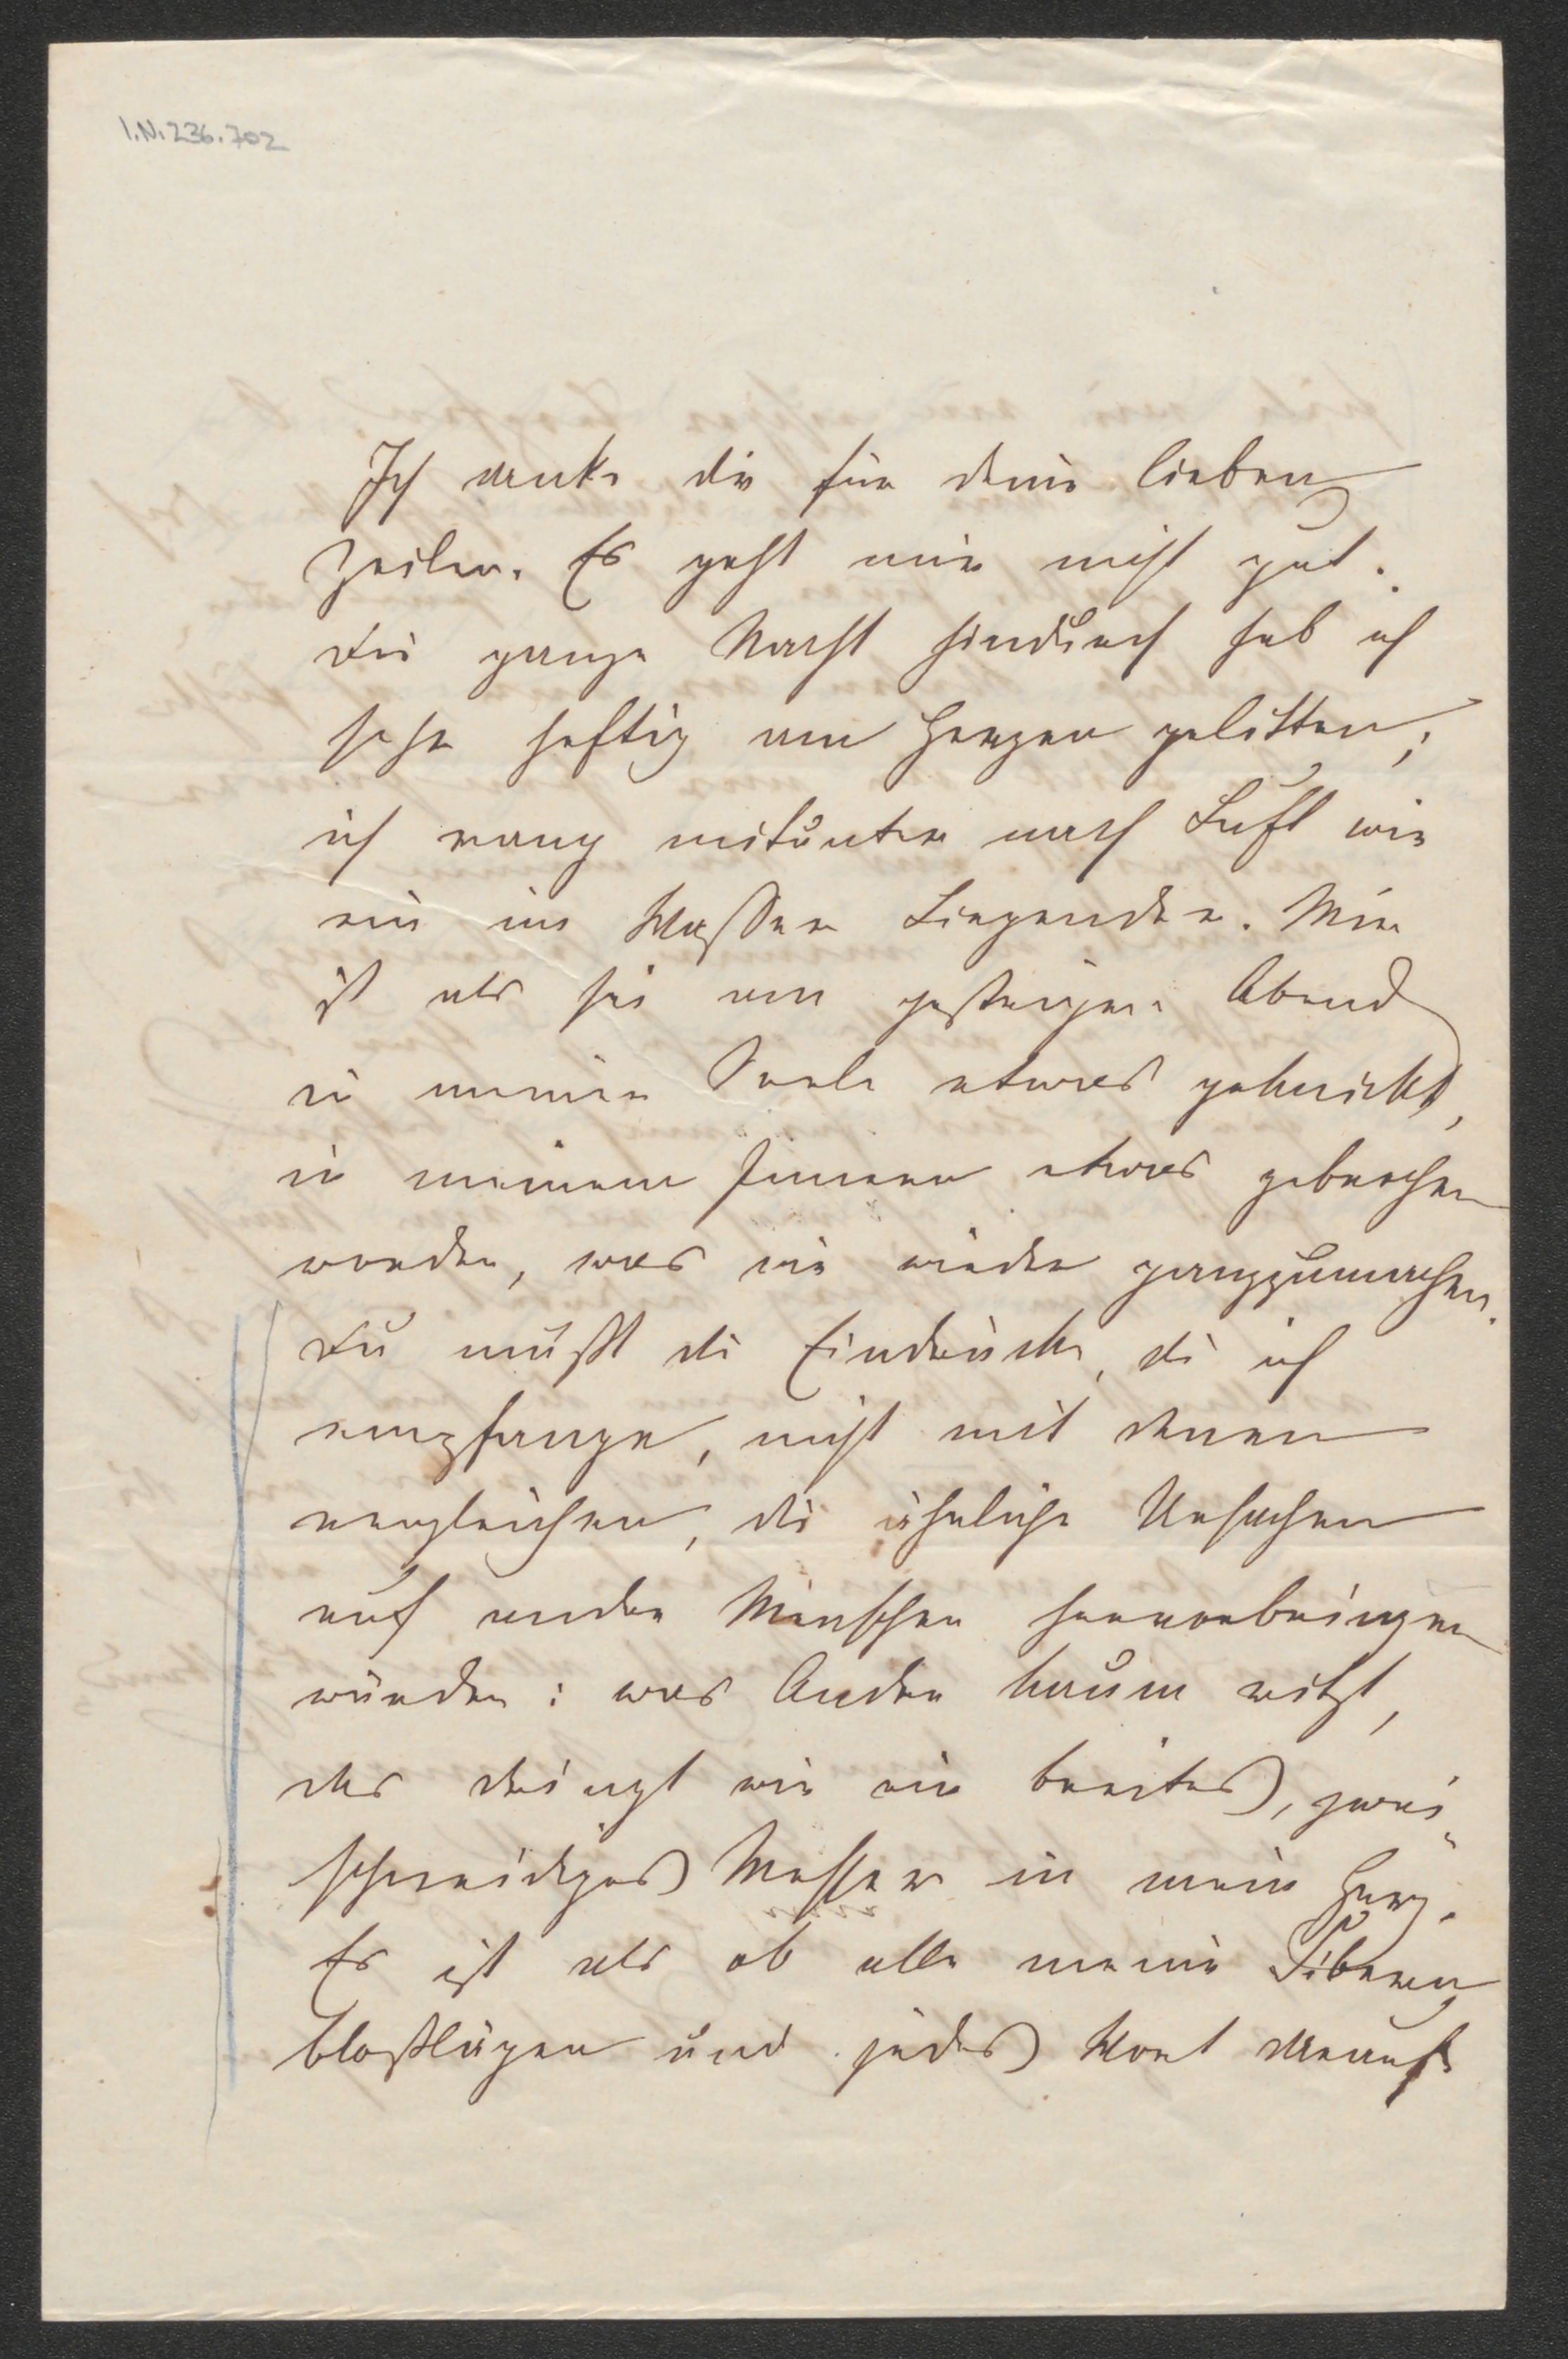 I.N. 236.702
Ich danke dir für deine lieben
Zeilen. Es geht mir nicht gut.
Die ganze Nacht hindurch hab ich
sehr heftig am Herzen gelitten;
ich rang mitunter nach Luft wie
ein im Wasser Liegender. Mir
ist als sei am gestrigen Abend
in meiner Seele etwas geknickt,
in meinem Innern etwas gebrochen
worden, was nie wieder ganzzumachen.
Du mußt die Eindrücke, die ich
empfange, nicht mit denen
vergleichen, die ähnliche Ursachen
auf andre Menschen hervorbringen
würden: was Andre kaum ritzt,
das dringt wie ein breites, zwei-
schneidiges Messer in mein Herz.
Es ist als ob alle meine Fibern
bloßlägen und jedes Wort darauf